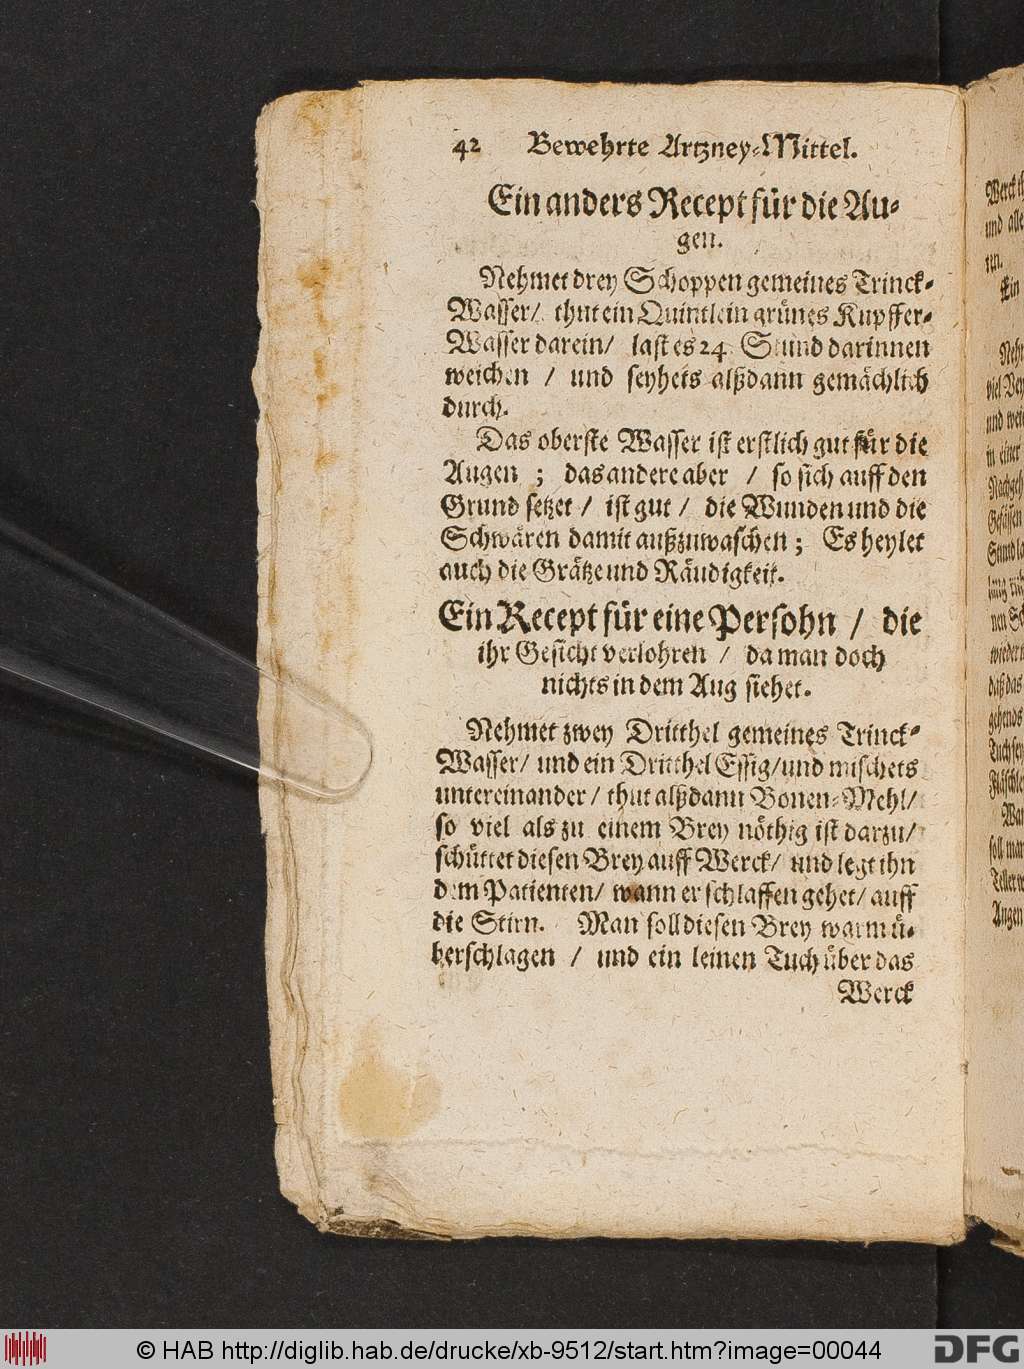 42 Bewehrte Artzney-Mittel.
Ein anders Recept für die Au-
gen.
Nehmet drey Schoppen gemeines Trinck-
Wasser/ thut ein Quintlein grünes Kupffer-
Wasser darein/ last es 24 Stund darinnen
weichen / und seyhets alßdann gemächlich
durch.
Das oberste Wasser ist erstlich gut für die
Augen ; das andere aber / so sich auff den
Grund setzet / ist gut / die Wunden und die
Schwären damit außzuwaschen ; Es heylet
auch die Grätze und Räudigkeit.
Ein Recept für eine Persohn / die
ihr Gesicht verlohren / da man doch
nichts in dem Aug siehet.
Nehmet zwey Dritthel gemeines Trinck-
Wasser/ und ein Dritthel Essig/ und mischets
untereinander/ thut alßdann Bonen-Mehl/
so viel als zu einem Brey nöthig ist darzu/
schüttet diesen Brey auff Werck/ und legt ihn
dem Patienten/ wann er schlaffen gehet/ auff
die Stirn. Man soll diesen Brey warm ü-
berschlagen / und ein leinen Tuch über das
Werck
Werck
und alle
ren.
Ein
viel
und
in einer
Stund
wieder
daß das
gehends
soll man
Augen
© HAB http://diglib.hab.de/drucke/xb-9512/start.htm?image=00044
DFG